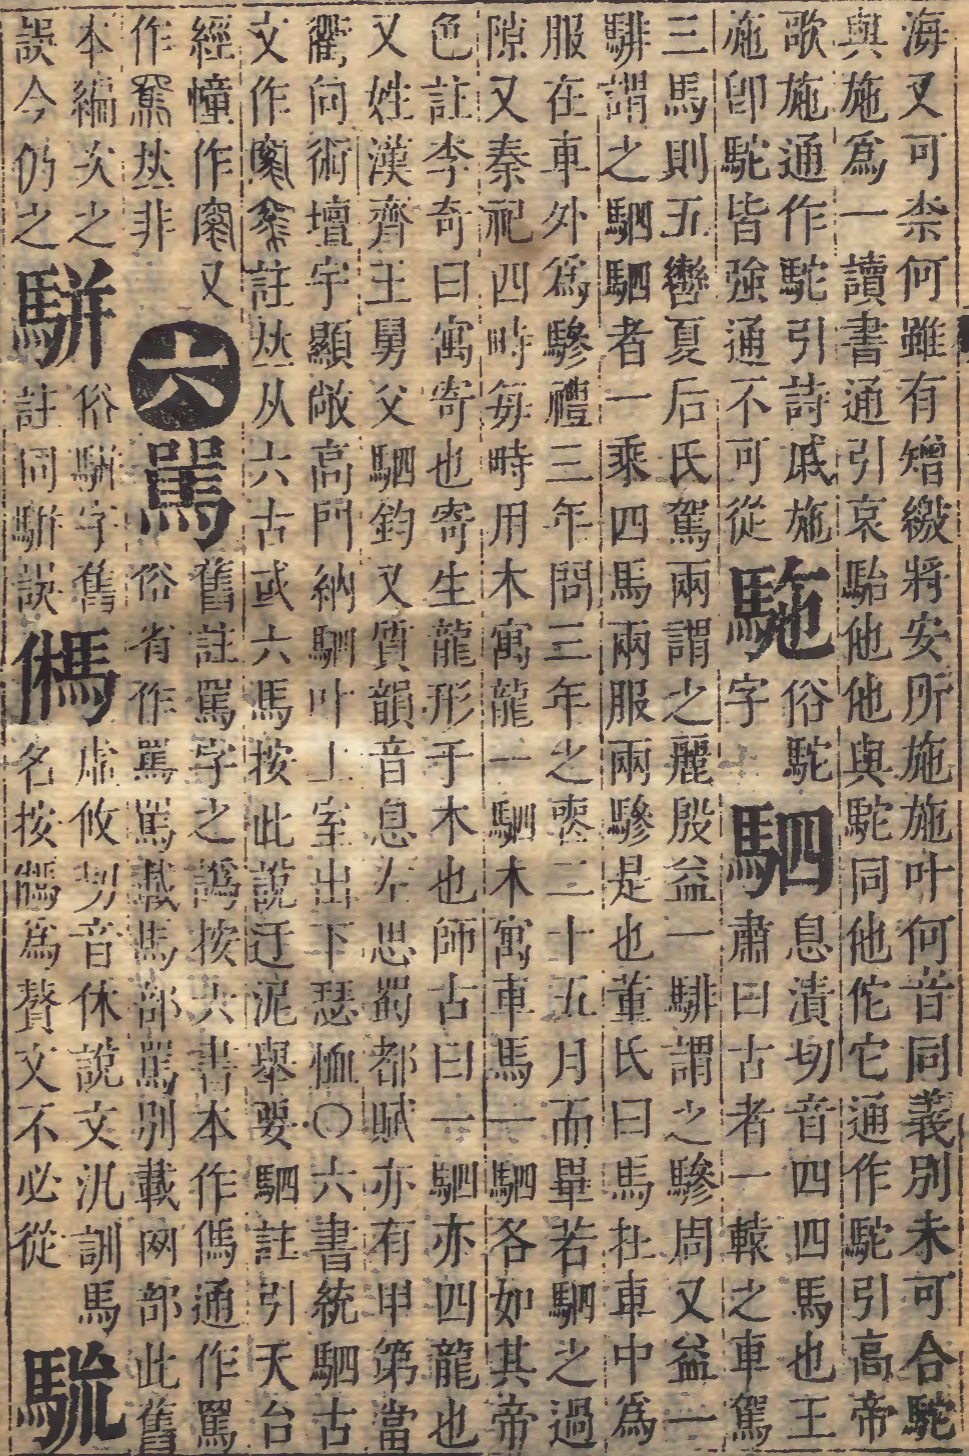 海又可柰何雖有矰繳將安所施施叶何音同義別未可合駝
與施爲一讀書通引哀駘他他與駝同他佗它通作駝引高帝
歌施通作駝引詩戚施
施卽駝皆強通不可從
駞
俗駝
字
駟
息漬切音四四馬也王
肅曰古者一轅之車駕
三馬則五轡夏后氏駕兩謂之麗殷益一騑謂之驂周又益一
騑謂之駟駟者一乘四馬兩服兩驂是也董氏曰馬在車中爲
服在車外爲驂禮三年問三年之喪二十五月而畢若駟之過
隙又秦祀四時每畤用木寓龍一駟木寓車馬一駟各如其帝
色註李奇曰寓寄也寄生龍形于木也師古曰一駟亦四龍也
又姓漢齊王舅父駟鈞又質韻音息左思蜀都賦亦有甲第當
衢向術壇宇顯敞高門納駟叶上室出下瑟恤○六書統駟古
文作註𠀤从六古或六馬按此說迂泥舉要駟註引天台
經幢作又
作𠀤非
六
駡
舊註罵字之譌按六書本作傌通作罵
俗省作駡罵載馬部罵別載网部此舊
本編次之
誤今仍之
騈
俗駢字舊
註同駢誤
虛攸切音休說文汎訓馬
名按爲贅文不必從